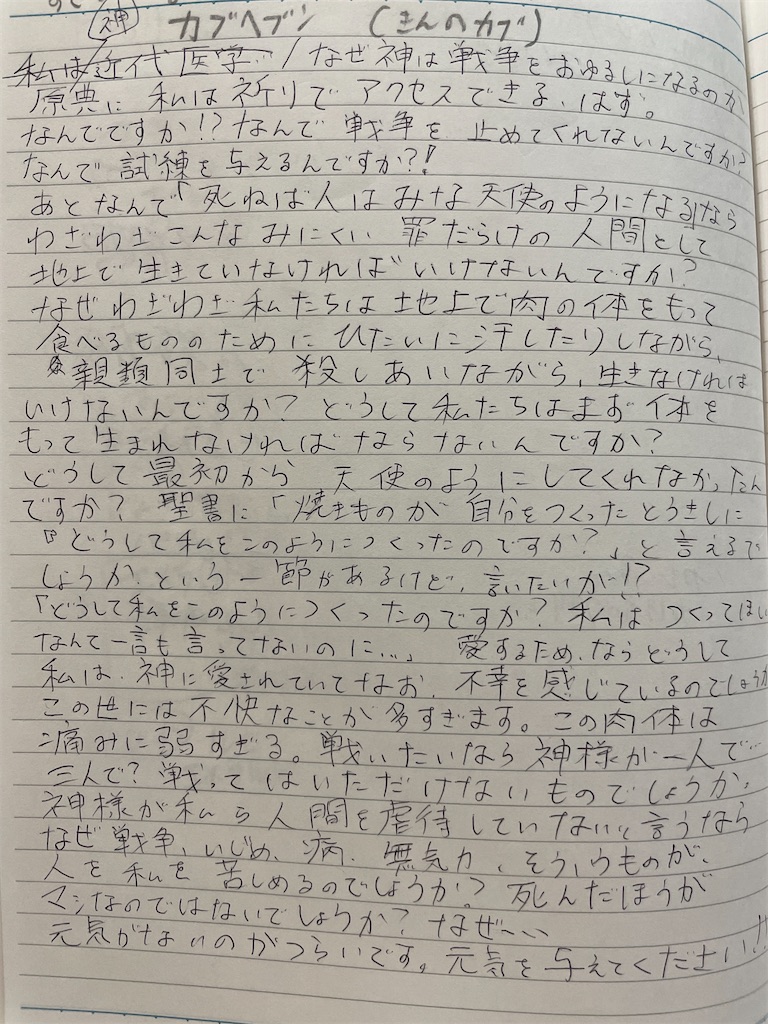 神 カブヘブン (きんのカブ)
私は近代医学 / なぜ神は戦争をおゆるしになるのか
原典に 私は祈りで アクセスできる、はず。
なんでですか!? なんで 戦争を 止めてくれないんですか?
なんで 試練を与えるんですか?!
あとなんで「死ねば人はみな天使のようになる」なら
わざわざこんなみにくい 罪だらけの 人間として
地上で生きていなければいけないんですか?
なぜわざわざ私たちは地上で肉の体をもって
食べるもののために ひたいに汗したりしながら、
親類同士で 殺しあいながら、生きなければ
いけないんですか? どうして私たちはまず 体を
もって生まれなければならないんですか?
どうして最初から 天使のようにしてくれなかったん
ですか? 聖書に「焼きものが 自分をつくったとうきしに
『どうして私をこのようにつくったのですか?」と言えるで
しょうか、という一節があるけど、言いたいが!?
「どうして私をこのようにつくったのですか? 私は つくってほしい
なんて一言も言ってないのに…」 愛するため、ならどうして
私は、神に愛されていてなお、不幸を感じているのでしょうか
この世には不快なことが多すぎます。この肉体は
痛みに弱すぎる。戦いたいなら神様が一人で…
三人で? 戦ってはいただけないものでしょうか、
神様が私ら人間を虐待していないと言うなら
なぜ戦争、いじめ、病、無気力、そういうものが、
人を 私を 苦しめるのでしょうか? 死んだほうが
マシなのではないでしょうか? なぜ、、、
元気がないのがつらいです。元気を与えてください!!